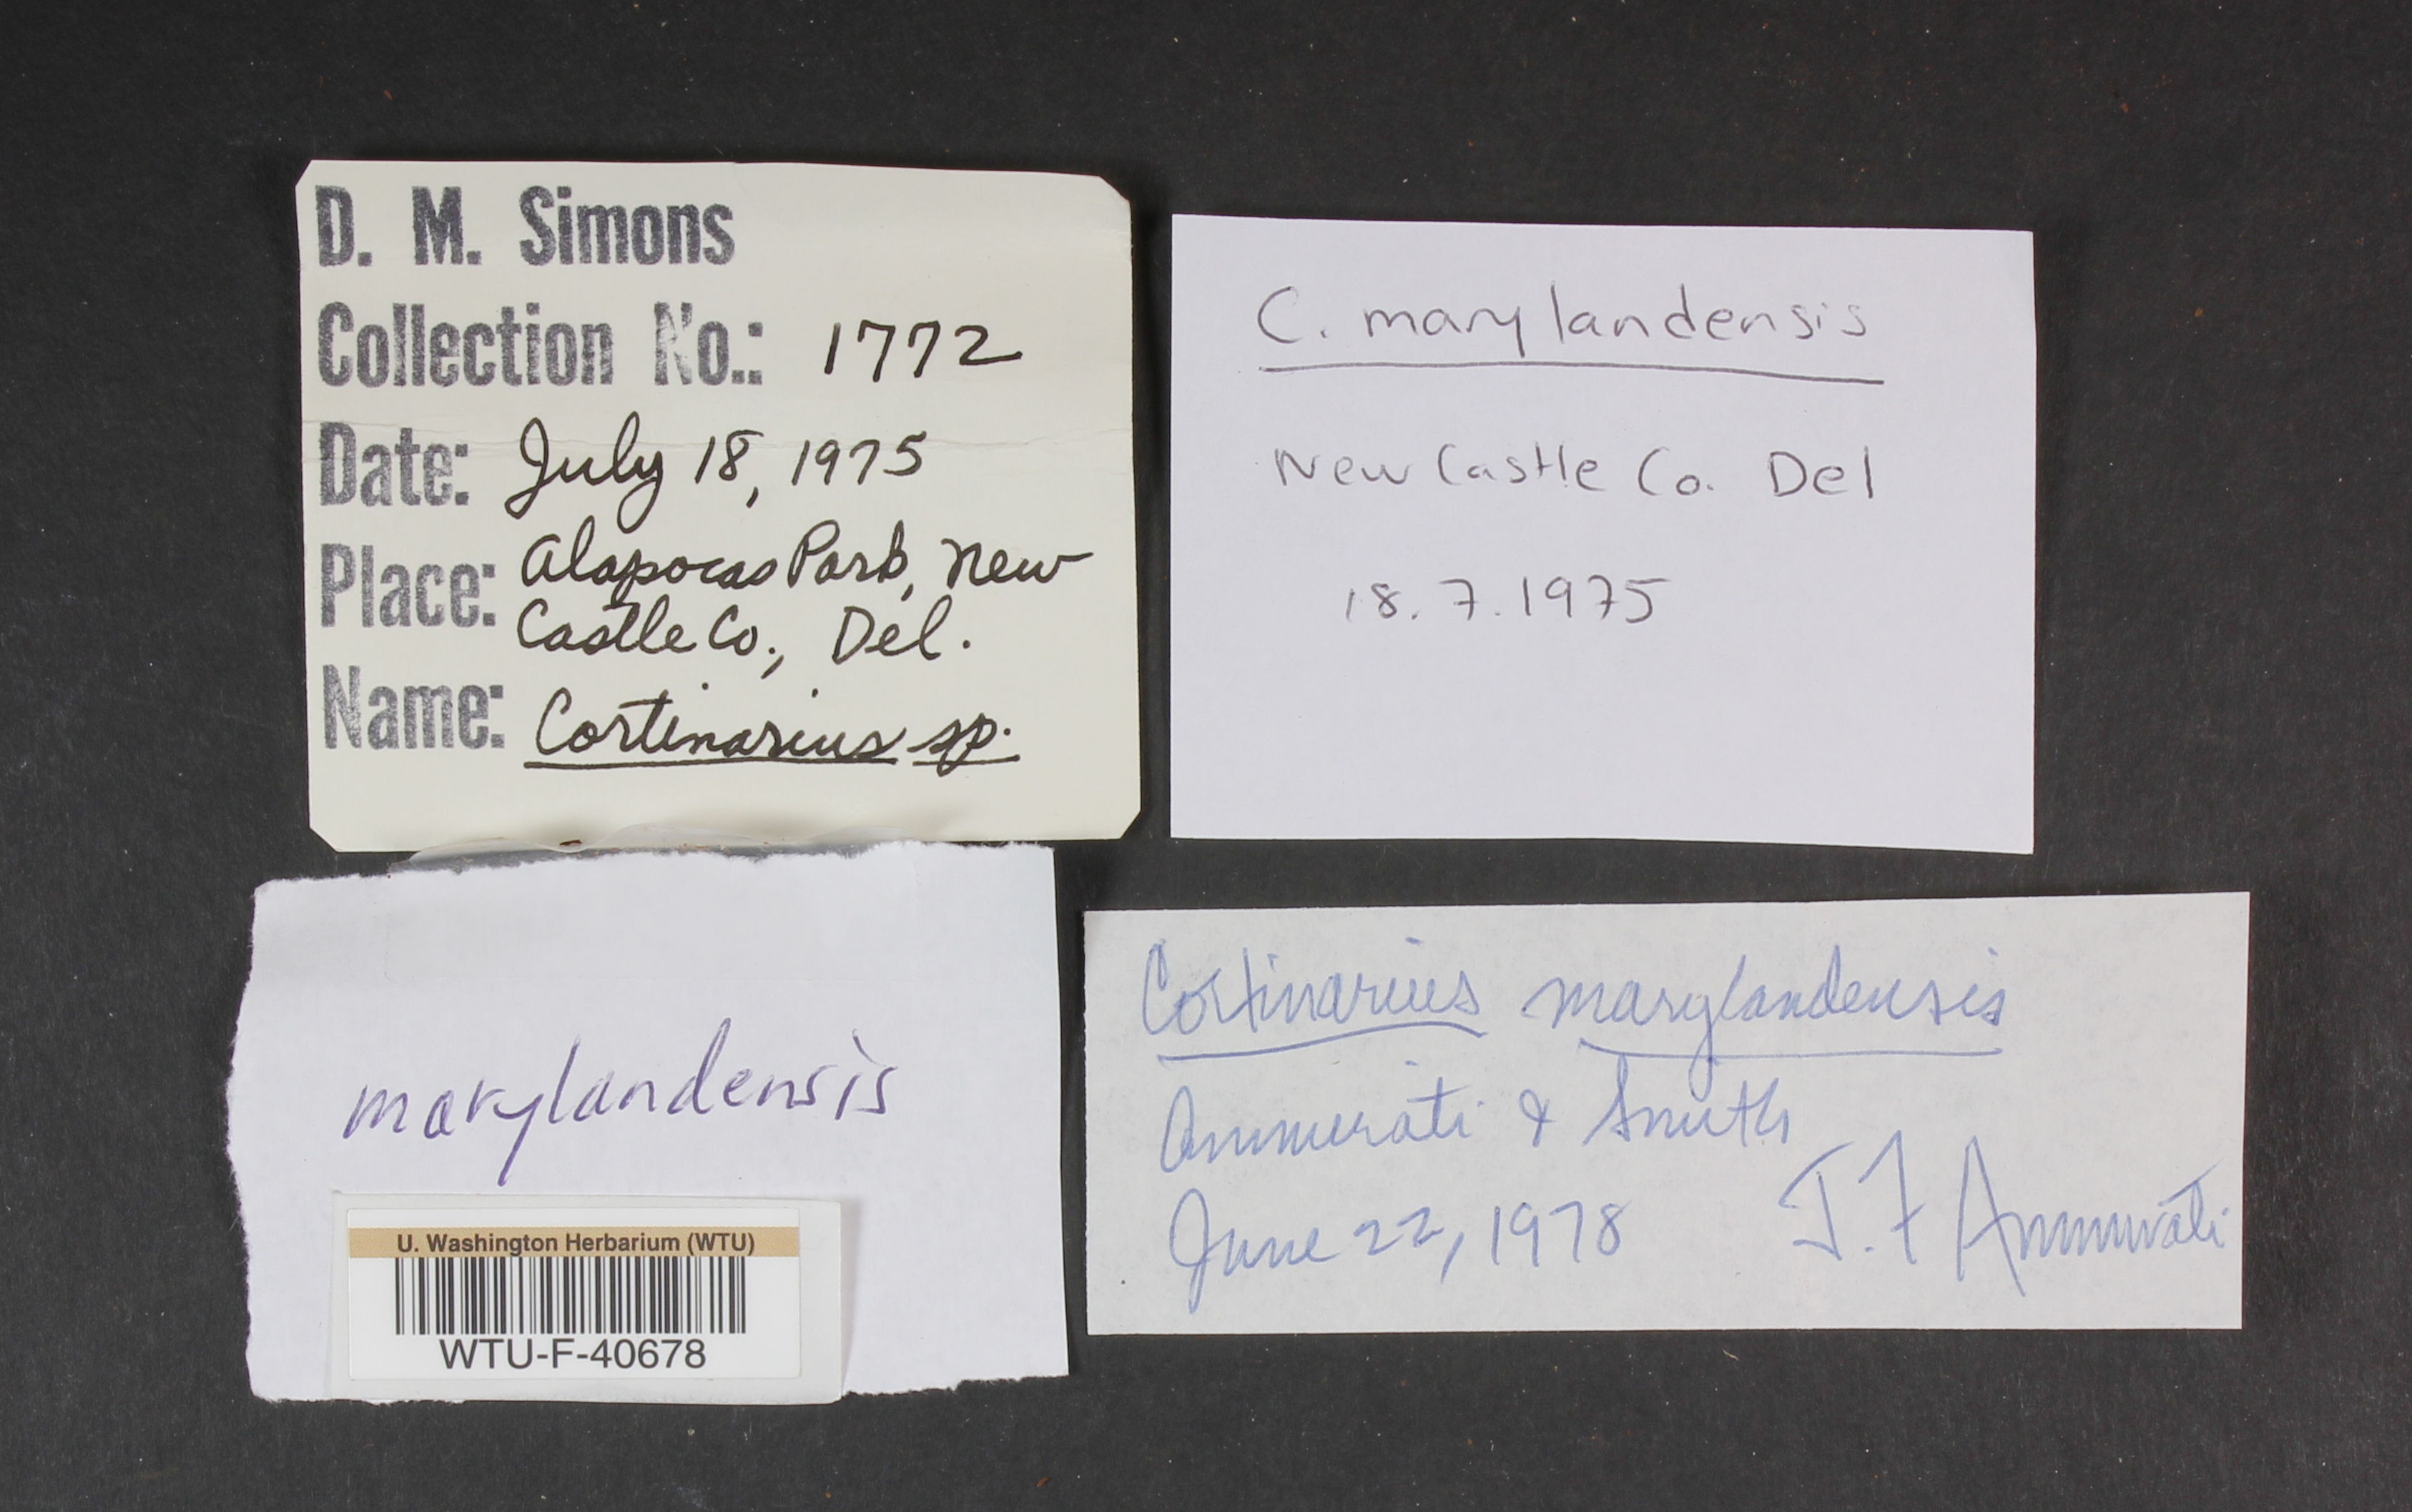 D. M. Simons
Collection No.: 1772
Date: July 18, 1975
Place: Alapocas Park, New
Castle Co., Del.
Name: Cortinarius sp.
C. marylandensis
New Castle Co. Del
18.7.1975
marylandensis
U. Washington Herbarium (WTU)
WTU-F-40678
Cortinarius marylandensis
Ammirati & Smith
June 22, 1978 J.F Ammirati